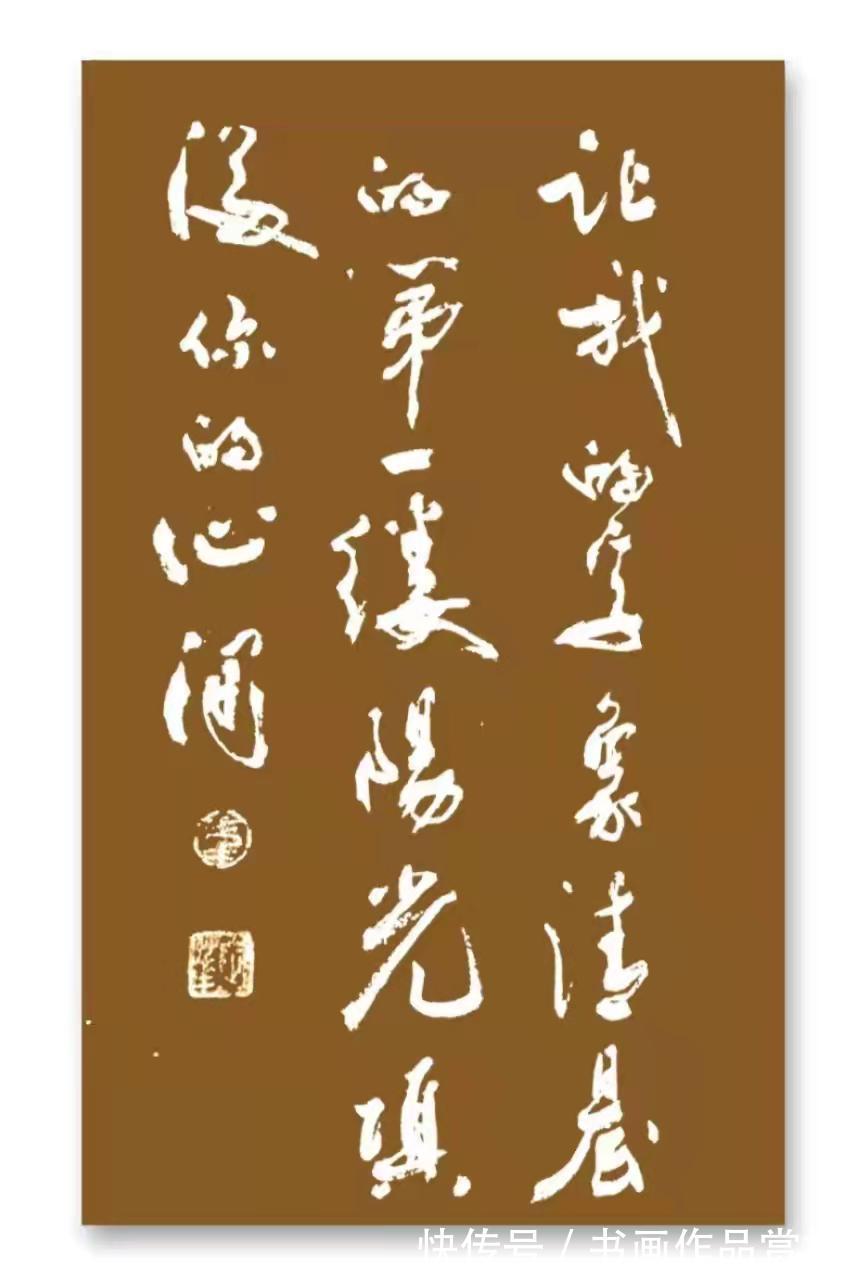 让我的爱象清晨
的第一缕陽光填
你的心间
快传号 / 书画作品赏